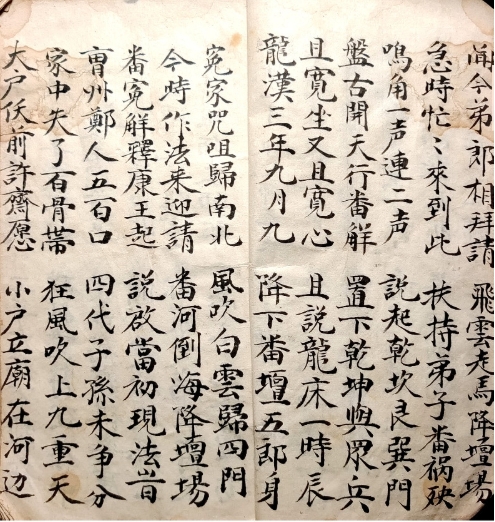 今弟郎相拜請 飛雲走馬降壇場
急時忙〻來到此 扶持弟子番祸殃
鳴角一声連二声 說起乾坎艮巽門
盤古開天行番解 置下乾坤與眾兵
且寬坐又且寬心 且說龍床一時辰
龍漢三年九月九 降下番壇五郎身
冤家咒咀歸南北 風吹白雲歸四門
今時作法来迎請 番河倒海降壇場
番冤解釋康王起 說放當初現法旹
州鄭人五百口 四代子孫未争分
家中失了百骨帯 狂風吹上九重天
大户伏前許齋愿 小户立廟在河边